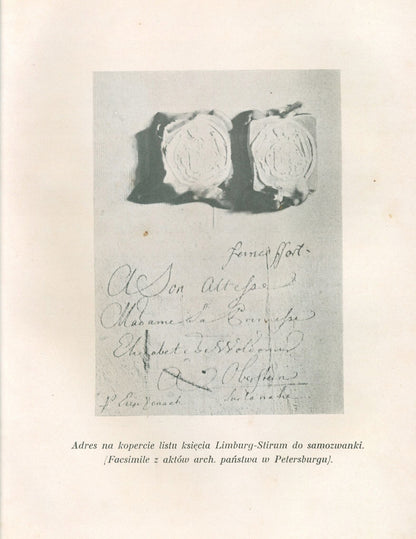 A Son Altesse
Madame La Comtesse
Elisabeth de
A Oberstein
Adres na kopercie listu księcia Limburg-Stirum do samozwanki.
[Facsimile z aktów arch. państwa w Petersburgu].